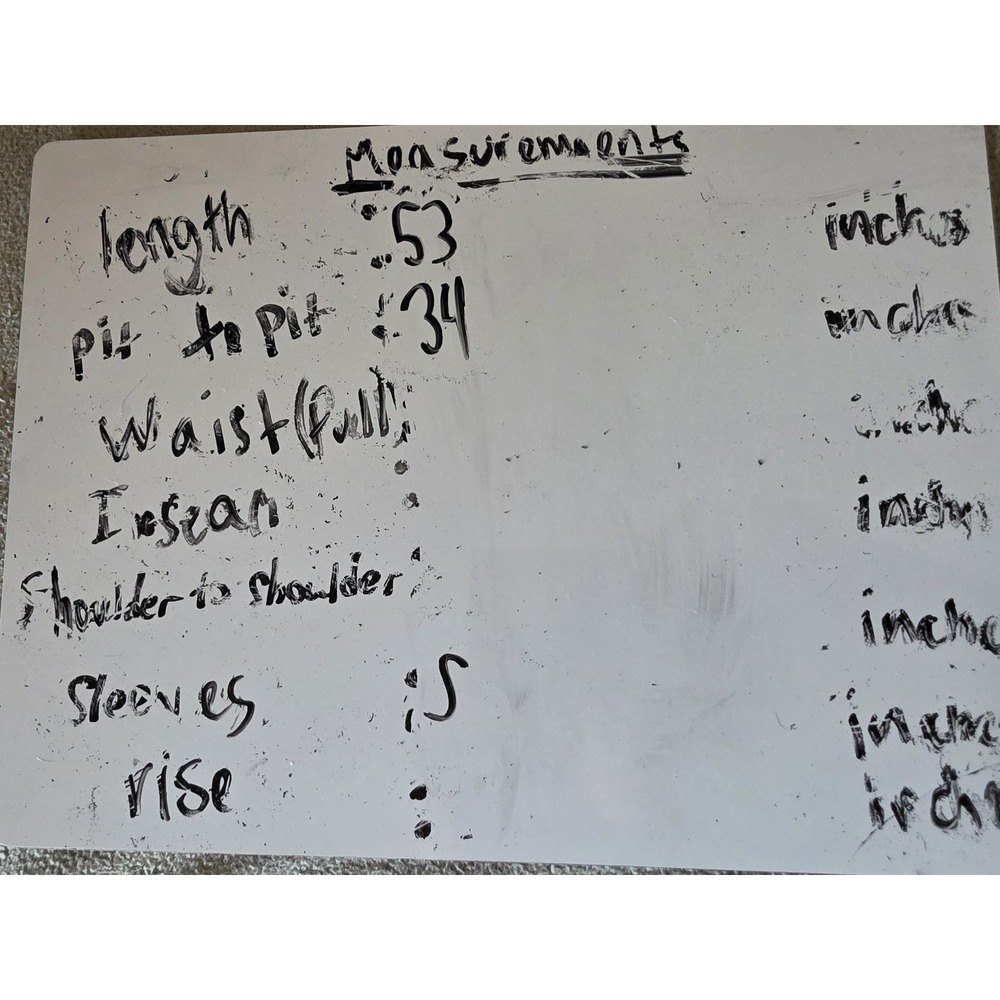 Measurements
length : 53 inches
pit to pit : 34 inches
Waist (full) : inches
Inseam : inches
Shoulder to shoulder : inches
Sleeves : 5 inches
rise : inches